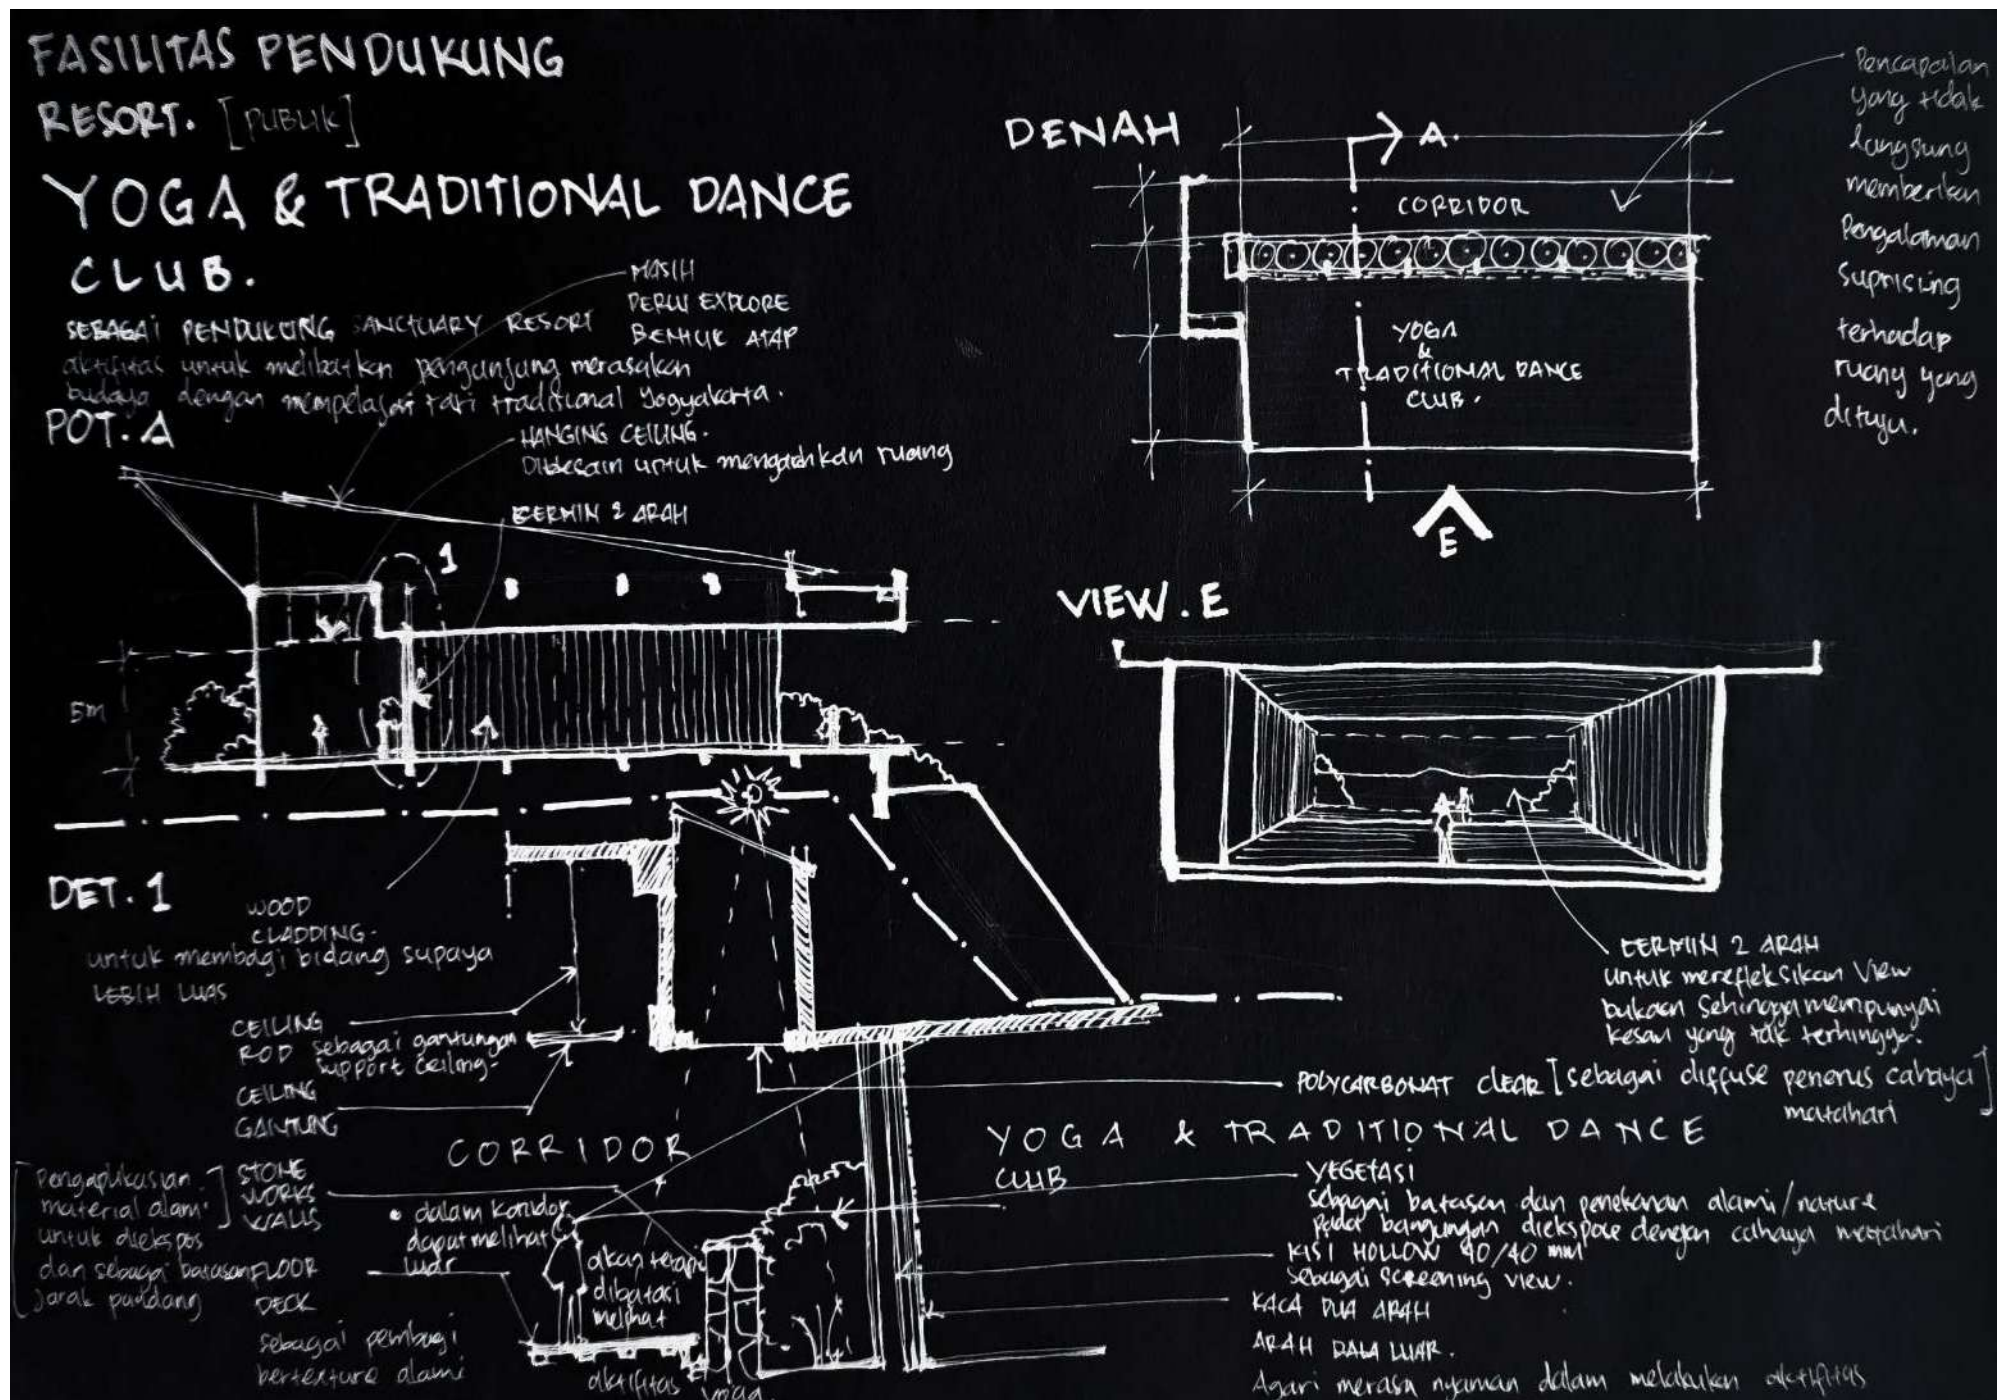 FASILITAS PENDUKUNG
RESORT. [PUBLIK]
YOGA & TRADITIONAL DANCE
CLUB.
SEBAGAI PENDUKUNG SANCTUARY RESORT
aktifitas untuk melibatkan pengunjung merasakan
budaya dengan mempelajari tari traditional Yogyakarta.
MASIH
PERLU EXPLORE
BENTUK ATAP
POT. A
HANGING CEILING.
Didesain untuk mengarahkan ruang
CERMIN 2 ARAH
1
5m
DENAH
A.
CORRIDOR
YOGA
&
TRADITIONAL DANCE
CLUB.
E
Pencapaian
yang tidak
langsung
memberikan
Pengalaman
Suprising
terhadap
ruang yang
dituju.
VIEW. E
CERMIN 2 ARAH
untuk merefleksikan View
bukaan Sehingga mempunyai
kesan yang tak terhingga.
DET. 1
WOOD
CLADDING.
untuk membagi bidang supaya
LEBIH LUAS
CEILING
ROD sebagai gantungan
support Ceiling.
CEILING
GANTUNG
STONE
WORKS
WALLS
[Pengaplikasian
material alami
untuk diekspos
dan sebagai batasan
jarak pandang]
FLOOR
DECK
sebagai pembagi
bertexture alami
CORRIDOR
• dalam koridor
dapat melihat
luar
akan tetapi
dibatasi
melihat
aktifitas yoga.
POLYCARBONAT CLEAR [sebagai diffuse penerus cahaya
matahari]
YOGA & TRADITIONAL DANCE
CLUB
VEGETASI
sebagai batasan dan penekanan alami/nature
pada bangungan diekspose dengan cahaya matahari
KISI HOLLOW 40/40 mm
sebagai screening view.
KACA DUA ARAH
ARAH DALA LUAR.
Agari merasa nyaman dalam melakukan aktifitas